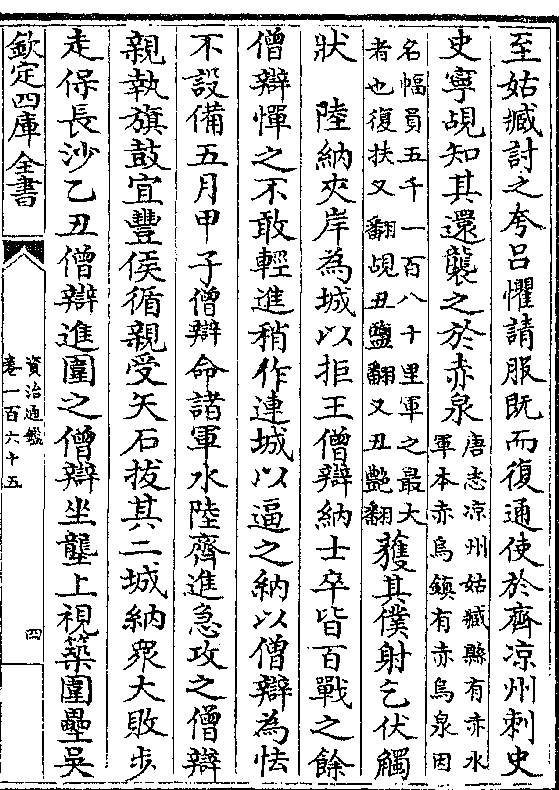 至姑臧討之夸呂懼請服既而復通使於齊凉州刺史
史寧覘知其還襲之於赤泉唐志凉州姑臧縣有赤水
軍本赤烏鎮有赤烏泉因
名幅員五千一百八十里軍之最大
者也復扶又翻覘丑鹽翻又丑艶翻獲其僕射乞伏觸
狀　陸納夾岸為城以拒王僧辯納士卒皆百戰之餘
僧辯憚之不敢輕進稍作連城以逼之納以僧辯為怯
不設備五月甲子僧辯命諸軍水陸齊進急攻之僧辯
親執旗鼓宜豐侯循親受矢石拔其二城納衆大敗步
走保長沙乙丑僧辯進圍之僧辯坐壟上視築圍壘吳
欽定四庫全書
資治通鑑
卷一百六十五
四